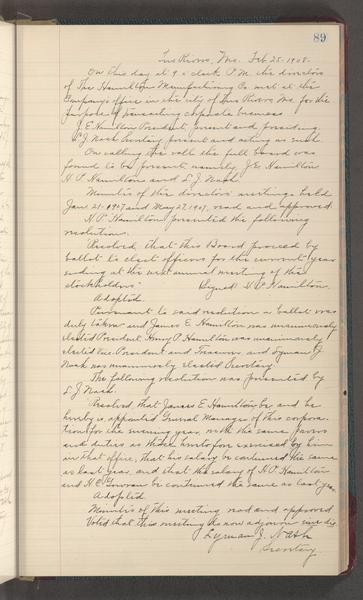 89
Two Rivers, Wis. Feb 25. 1908.
On this day at 9 o'clock P.M. the directors
of The Hamilton Manufacturing Co met at the
Company's office in the city of Two Rivers Wis. for the
purpose of transacting corporate business
J E Hamilton President present and presiding.
L J. Nash Secretary present and acting as such.
On calling the roll the full board was
found to be present, namely J E Hamilton
H P Hamilton and L J. Nash.
Minutes of the directors meetings held
Jan 21. 1907 and May 27 1907. read and approved.
H P Hamilton presented the following
resolution.
Resolved, that this Board proceed by
ballot to elect officers for the current year
ending at the next annual meeting of the
stockholders" Signed H P Hamilton.
Adopted.
Pursuant to said resolution a ballot was
duly taken and James E Hamilton was unanimously
elected President Henry P. Hamilton was unanimously
elected Vice President and Treasurer and Lyman J
Nash was unanimously elected Secretary.
The following resolution was presented by
L J Nash.
Resolved, that James E Hamilton be and he
hereby is appointed General Manager of this corpora-
tion for the ensuing year with the same powers
and duties as those heretofore exercised by him
in that office, that his salary be continued the same
as last year, and that the salary of H P Hamilton
and H. C. Gowran be continued the same as last year
Adopted.
Minutes of this meeting read and approved
Voted that this meeting do now adjourn sine die
Lyman J. Nash
Secretary.